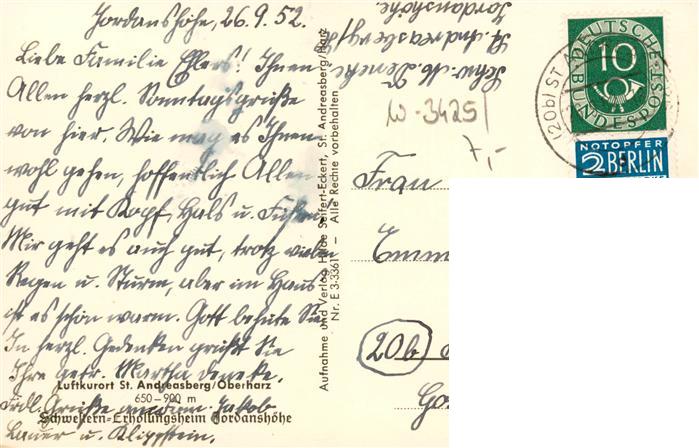 Jordanshöhe, 26.9.52.
Liebe Familie Ehlers! Ihnen
Allen herzl. Sonntagsgrüße
von hier. Wie mag es Ihnen
wohl gehen, hoffentlich Allen
gut mit Kopf, Hals u. Füßen.
Mir geht es auch gut, trotz vielen
Regen u. Sturm, aber im Haus
ist es schön warm. Gott behüte Sie.
In herzl. Gedenken grüßt Sie
Ihre getr. Martha Deneke.
Frdl. Grüße Jakob
Lauer u. Klippstein.
Luftkurort St. Andreasberg/Oberharz
650–900 m
Schwestern-Erholungsheim Jordanshöhe
Aufnahme und Verlag: Hilde Seifert-Eckert, St. Andreasberg/Harz
Nr. E 3-3361 – Alle Rechte vorbehalten
Schw. M. Deneke
St. Andreasberg/
Jordanshöhe
W-3425
7,-
DEUTSCHE BUNDESPOST
10
(20b) ST A
NOTOPFER
2 BERLIN
Frau
Emm
20b